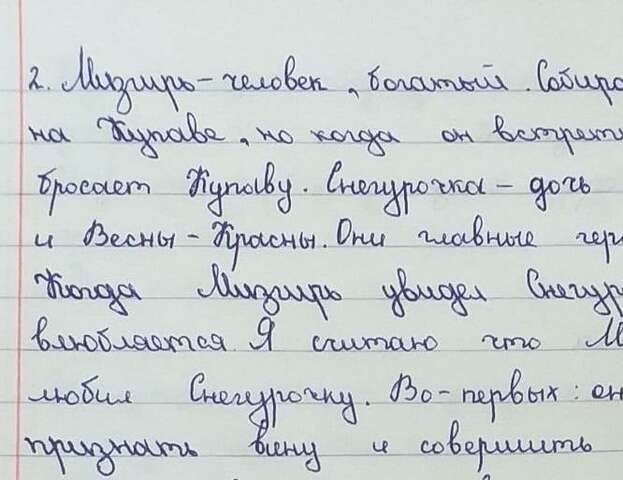 2. Мизгирь - человек, богатый. Собира
на Купаве, но когда он встрет
бросает Купаву. Снегурочка - дочь
и Весны - Красны. Они главные гер
Когда Мизгирь увидел Снегур
влюбляется. Я считаю что М
любил Снегурочку. Во-первых: он
признать вину и совершить